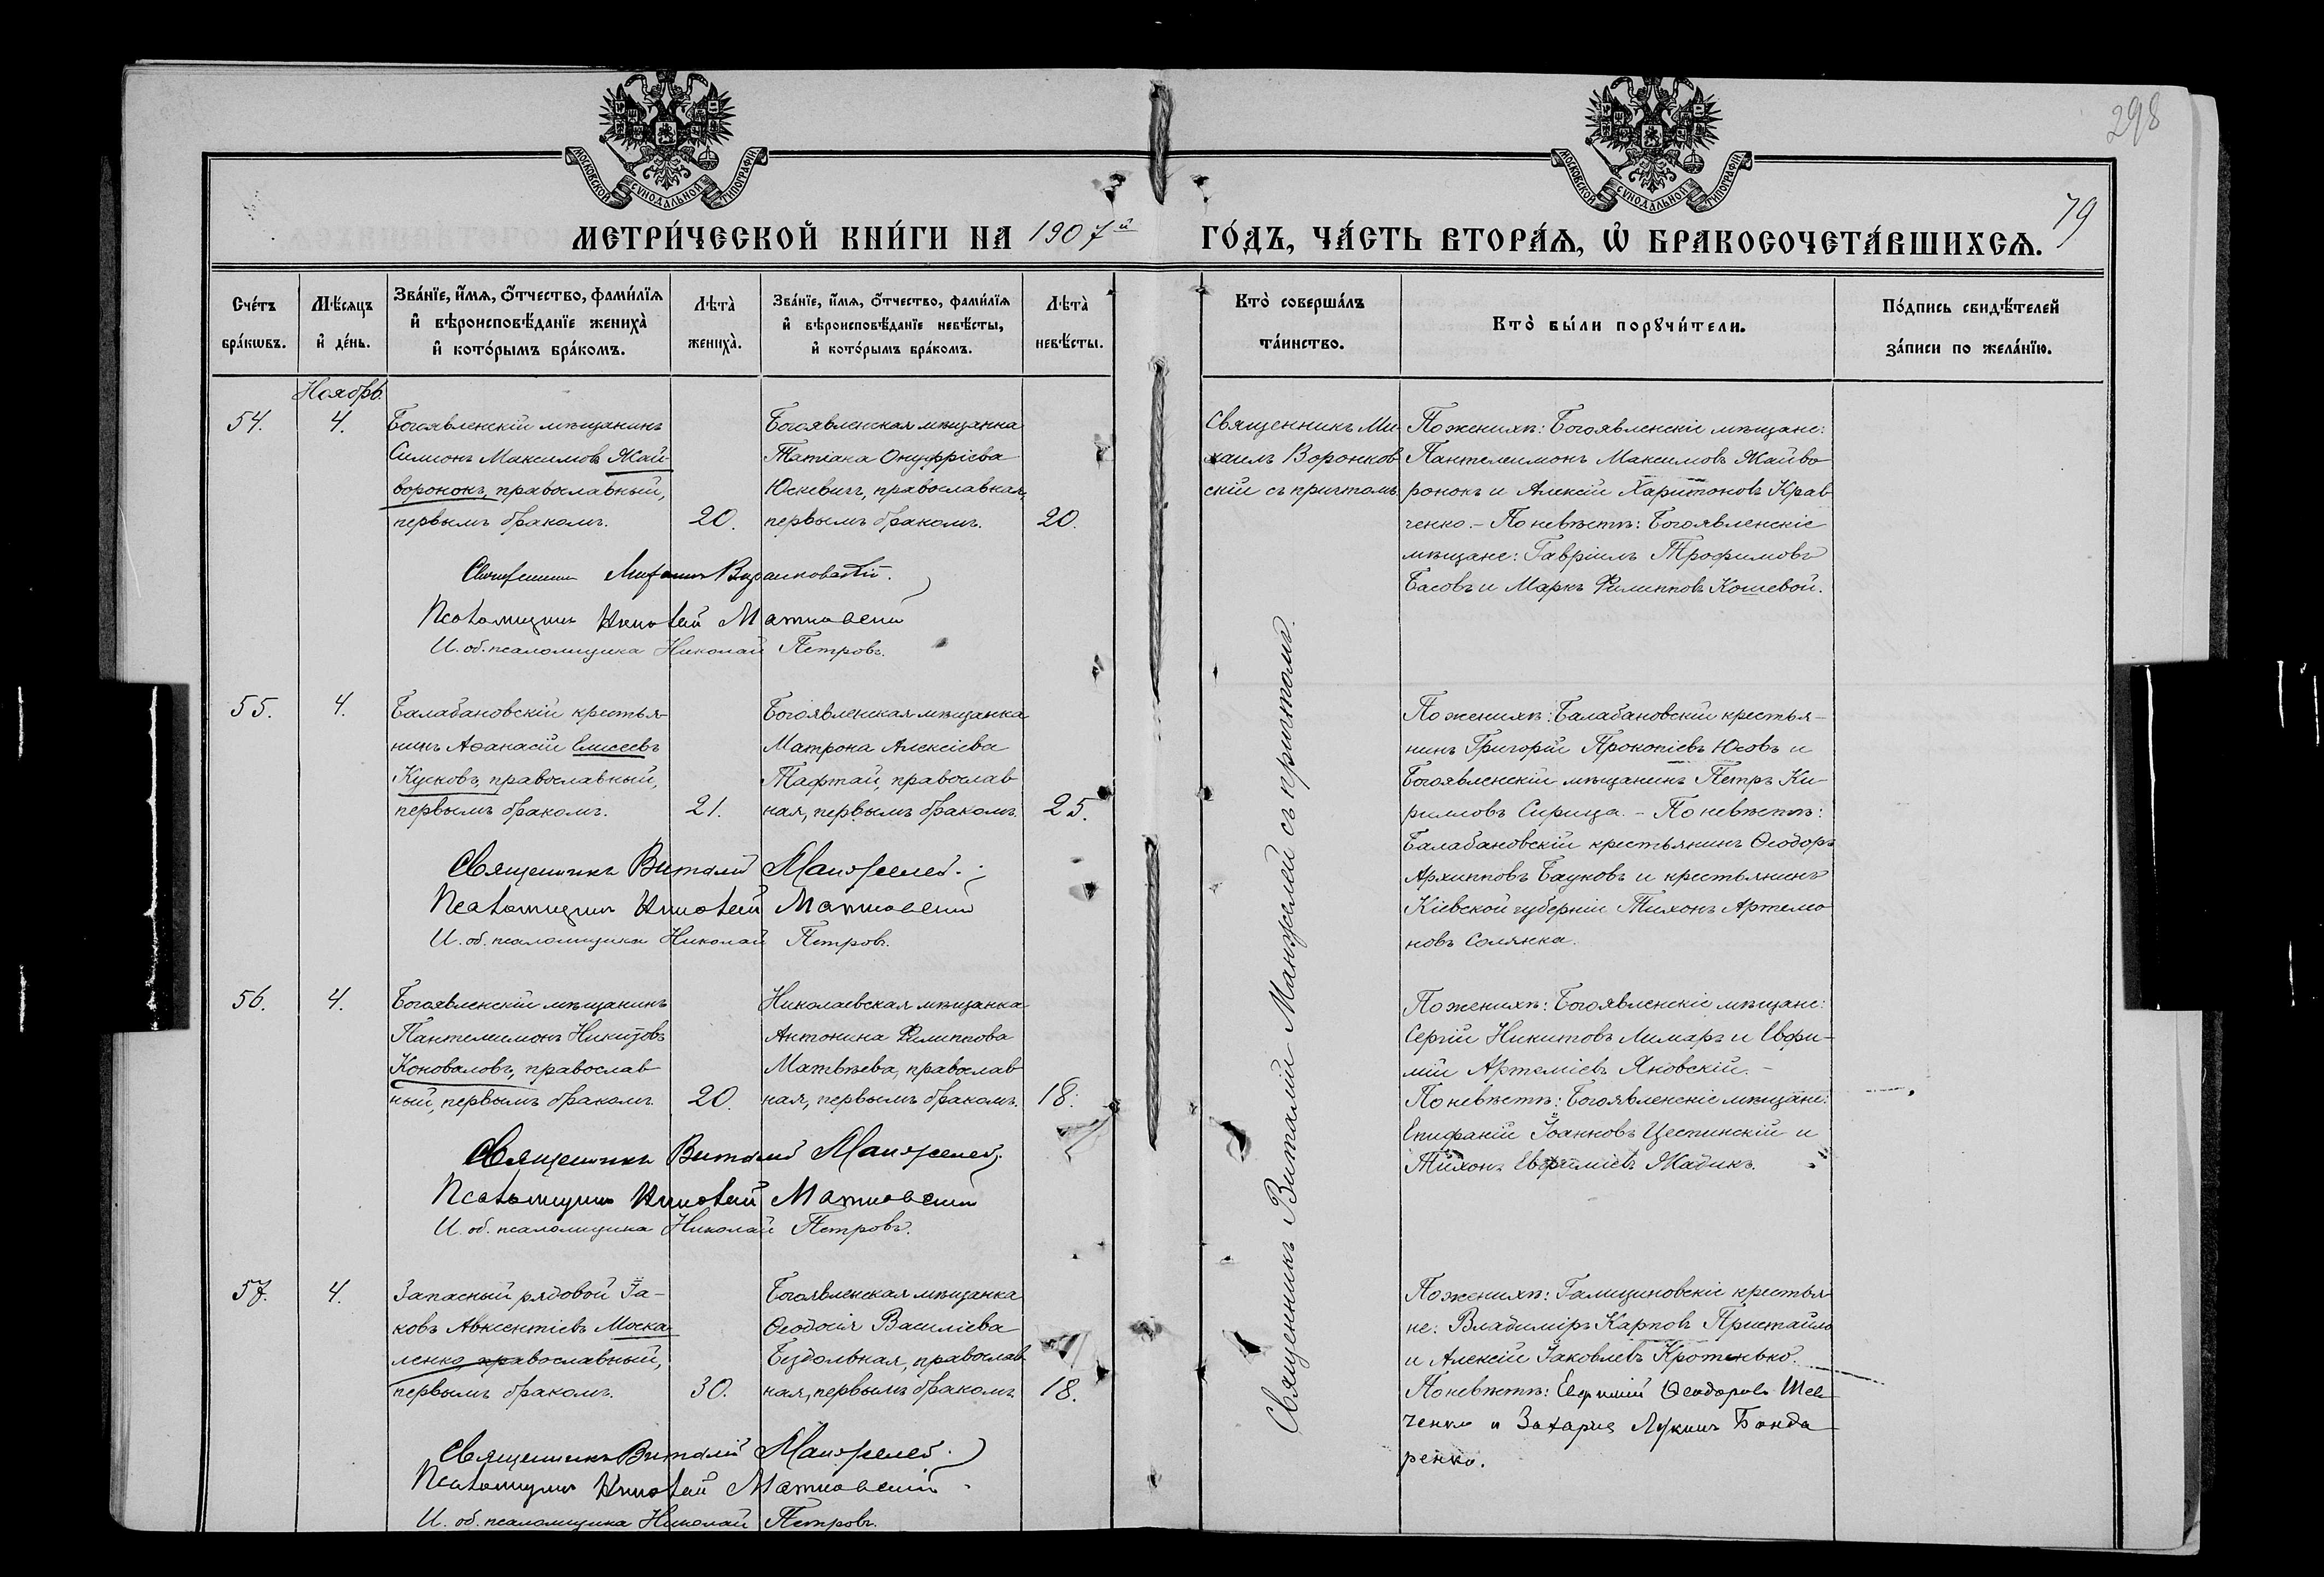 298
79
МОСКОВСКОЙ СѴНОДАЛЬНОЙ ТИПОГРАФІИ
МОСКОВСКОЙ СѴНОДАЛЬНОЙ ТИПОГРАФІИ
МЕТРИ́ЧЕСКОЙ КНИ́ГИ НА 1907й ГО́ДЪ, ЧА́СТЬ ВТОРА́Ѧ, Ѽ БРАКОСОЧЕТА́ВШИХСѦ.
Сче́тъ бра́кѡвъ.
Мѣ́сяцъ и҆ де́нь.
Зва́нїе, и҆́мѧ, ѻ҆́тчество, фами́лїѧ и҆ вѣроисповѣ́данїе жениха̀ и҆ кото́рымъ бра́комъ.
Лѣ́та̀ жениха̀.
Зва́нїе, и҆́мѧ, ѻ҆́тчество, фами́лїѧ и҆ вѣроисповѣ́данїе невѣ́сты, и҆ кото́рымъ бра́комъ.
Лѣ́та̀ невѣ́сты.
Кто̀ соверша́лъ та́инство.
Кто̀ бы́ли порꙋчи́тели.
По́дпись свидѣ́телей за́писи по жела́нїю.
Ноябрь.
54.
4.
Богоявленскій мѣщанинъ
Симеонъ Максимовъ Жай-
воронокъ, православный,
первымъ бракомъ.
20.
Богоявленская мѣщанка
Татіана Онуфріева
Юскевич, православная,
первымъ бракомъ.
20.
Священникъ Ми-
хаилъ Воронков
скій съ причтомъ.
По женихѣ: Богоявленскіе мѣщане:
Пантелеимонъ Максимовъ Жайво
ронокъ и Алексій Харитоновъ Крав
ченко. – По невѣстѣ: Богоявленскіе
мѣщане: Гавріилъ Трофимовъ
Басовъ и Маркъ Филипповъ Кошевой.
Священникъ Михаилъ Воронковскій.
Псаломщикъ Матковскій
И. об. псаломщика Николай Петровъ.
55.
4.
Балабановскій крестья-
нинъ Аѳанасій Елисеевъ
Кусковъ, православный,
первымъ бракомъ.
21.
Богоявленская мѣщанка
Матрона Алексіева
Тафтай, православ
ная, первымъ бракомъ.
25.
Священникъ Виталій Манжелей съ причтомъ.
По женихѣ: Балабановскій крестья-
нинъ Григорій Прокопіевъ Юсовъ и
Богоявленскій мѣщанинъ Петръ Ки-
рилловъ Сирица. – По невѣстѣ:
Балабановскій крестьянинъ Ѳеодоръ
Архипповъ Бауковъ и крестьянинъ
Кіевской губерніи Тихонъ Артемо
новъ Солянка.
Священникъ Виталій Манжелей.
Псаломщикъ Матковскій
И. об. псаломщика Николай Петров.
56.
4.
Богоявленскій мѣщанинъ
Пантелеимонъ Никитовъ
Коноваловъ, православ
ный, первымъ бракомъ.
20.
Николаевская мѣщанка
Антонина Филиппова
Матвѣева, православ
ная, первымъ бракомъ.
18.
По женихѣ: Богоявленскіе мѣщане:
Сергій Никитовъ Лимаръ и Евфи-
мій Артеміевъ Яновскій. –
По невѣстѣ: Богоявленскіе мѣщане:
Епифаній Іоанновъ Цеспинскій и
Тихонъ Евфиміевъ Жадикъ.
Священникъ Виталій Манжелей.
Псаломщикъ Матковскій
И. об. псаломщика Николай Петровъ.
57.
4.
Запасный рядовой Іа-
ковъ Авксентіевъ Моска-
ленко, православный,
первымъ бракомъ.
30.
Богоявленская мѣщанка
Ѳеодосія Василіева
Бездольная, православ
ная, первымъ бракомъ.
18.
По женихѣ: Галициновскіе крестья
не: Владиміръ Карповъ Пристайло
и Алексій Іаковлевъ Кротенько.
По невѣстѣ: Евфимій Ѳеодоровъ Шев
ченко и Захарія Лукинъ Бонда
ренко.
Священникъ Виталій Манжелей.
Псаломщикъ Матковскій.
И. об. псаломщика Николай Петровъ.